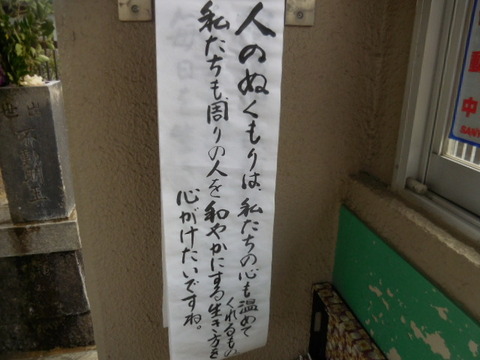 人のぬくもりは、私たちの心も温めて
くれるもの
私たちも周りの人を和やかにする生き方を
心がけたいですね。
中